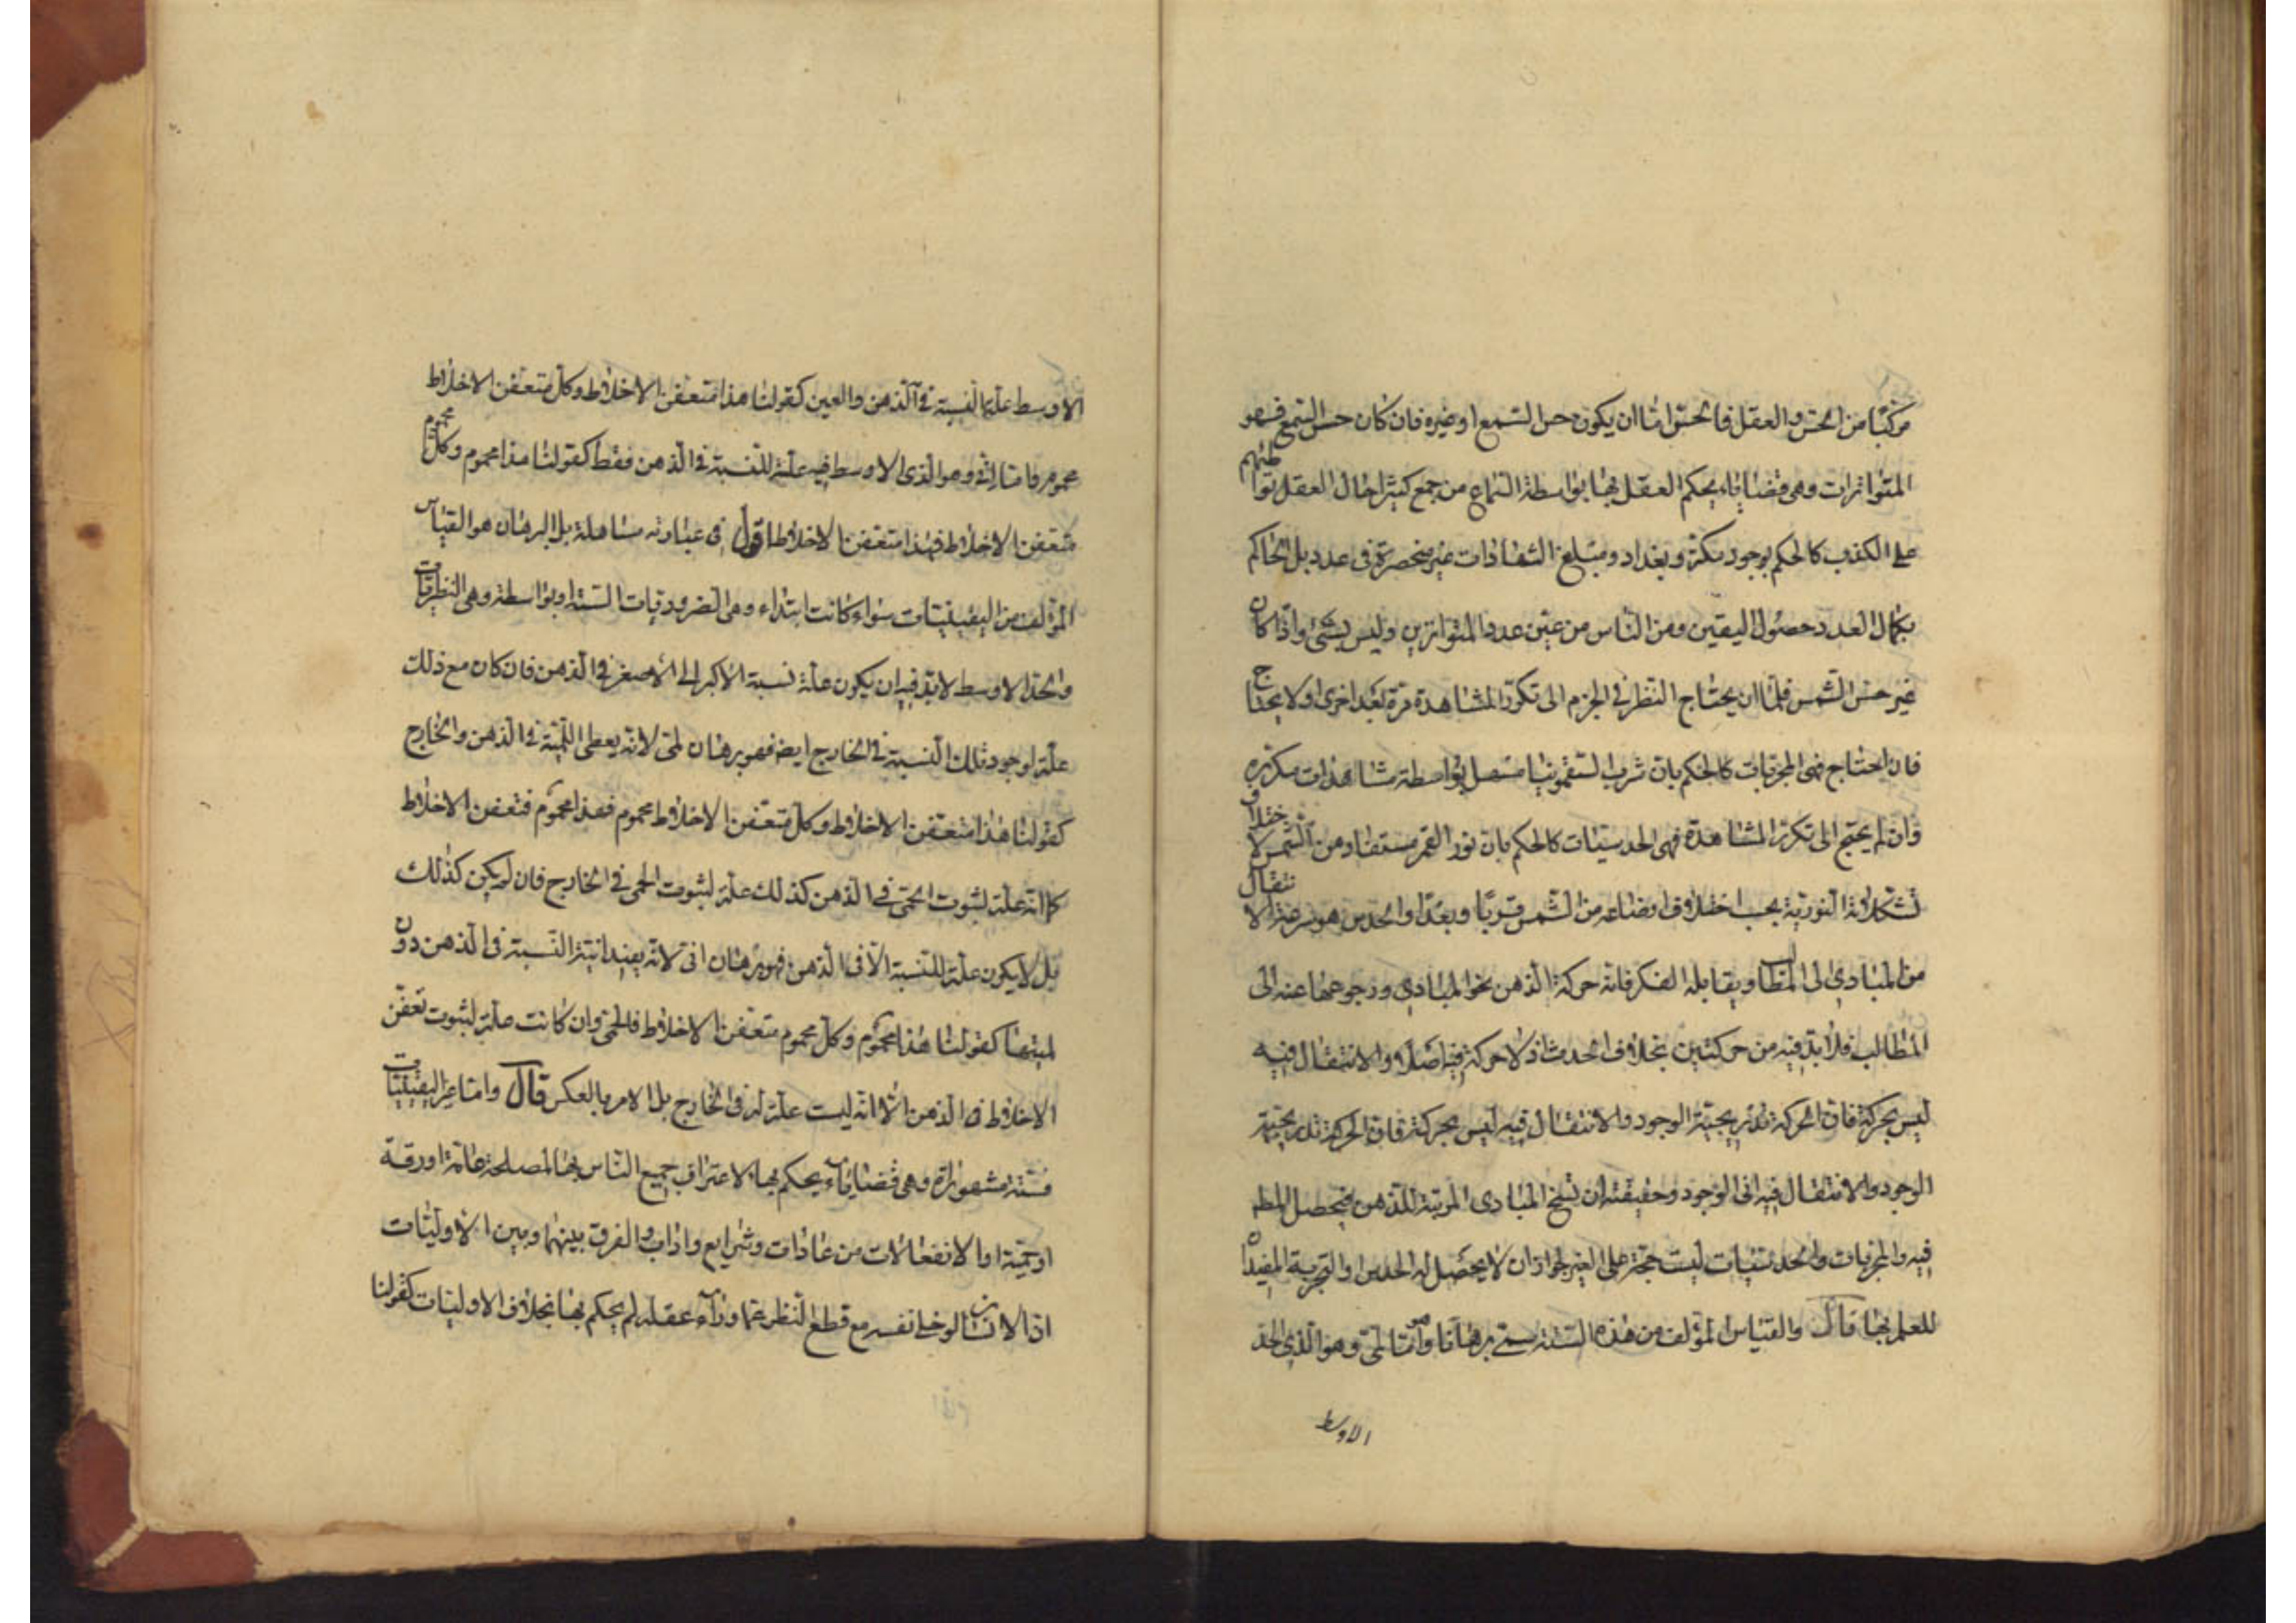 مركبا من الحس والعقل فالحس اما ان يكون حس السمع او غيره فان كان حس السمع فهو
المتواترات وهى قضايا يحكم العقل بها بواسطة السماع من جمع كثير احال العقل تواطئهم
على الكذب كالحكم بوجود مكة وبغداد ومبلغ الشهادات غير منحصرة فى عدد بل الحاكم
بكمال العدد حصول اليقين ومن الناس من عين عدد المتواترين وليس بشئ واذا كان
غير حس الشمس فلما ان يحتاج النظر فى الجزم الى تكرر المشاهدة مرة بعد اخرى او لا يحتاج
فان احتاج فهى المجربات كالحكم بان شرب السقمونيا مسهل بواسطة مشاهدات مكررة
وان لم يحتج الى تكرر المشاهدة فهى الحدسيات كالحكم بان نور القمر مستفاد من الشمس لاختلاف
تشكلاته النورية بحسب اختلاف اوضاعه من الشمس قربا وبعدا والحدس هو سرعة الانتقال
من المبادى الى المطالب ويقابله الفكر فانه حركة الذهن نحو المبادى ورجوعها عنه الى
المطالب فلا بد فيه من حركتين بخلاف الحدث اذ لا حركة فيه اصلا والانتقال فيه
ليس بحركة فان الحركة تدريجية الوجود والانتقال فيه ليس بحركة فان الحركة تدريجية
الوجود والانتقال فيه انى الوجود وحقيقته ان تسنح المبادى المرتبة للذهن فيحصل المط
فيه والمجربات والحدسيات ليست حجة على الغير لجواز ان لا يحصل له الحدس والتجربة المفيدان
للعلم بهما قال والقياس المؤلف من هذه الستة يسمى برهانا وهو اما لمى وهو الذى الحد
الاوسط
الاوسط علة النسبة فى الذهن والعين كقولنا هذا متعفن الاخلاط وكل متعفن الاخلاط
محموم واما انى وهو الذى الاوسط فيه علة للنسبة فى الذهن فقط كقولنا هذا محموم وكل محموم
متعفن الاخلاط فهذا متعفن الاخلاط اقول فى عبارته مساهلة بل البرهان هو القياس
المؤلف من اليقينيات سواء كانت ابتداء وهى الضروريات الستة او بواسطة وهى النظريات
والحد الاوسط لا بد فيه ان يكون علة نسبة الاكبر الى الاصغر فى الذهن فان كان مع ذلك
علة لوجود تلك النسبة فى الخارج ايض فهو برهان لمى لانه يعطى اللمية فى الذهن والخارج
كقولنا هذا متعفن الاخلاط وكل متعفن الاخلاط محموم فهذا محموم فتعفن الاخلاط
كما انه علة لثبوت الحمى فى الذهن كذلك علة لثبوت الحمى فى الخارج فان لم يكن كذلك
بل لا يكون علة للنسبة الا فى الذهن فهو برهان انى لانه يفيد انية النسبة فى الذهن دون
لميتها كقولنا هذا محموم وكل محموم متعفن الاخلاط فالحمى وان كانت علة لثبوت تعفن
الاخلاط فى الذهن الا انه ليست علة له فى الخارج بل الامر بالعكس قال واما غير اليقينيات
فستة مشهورات وهى قضايا يحكم بها لاعتراف جميع الناس بها لمصلحة عامة او رقة
او حمية او الانفعالات من عادات وشرايع واداب والفرق بينها وبين الاوليات
ان الانسان لو خلى نفسه مع قطع النظر عما وراء عقله لم يحكم بها بخلاف الاوليات كقولنا